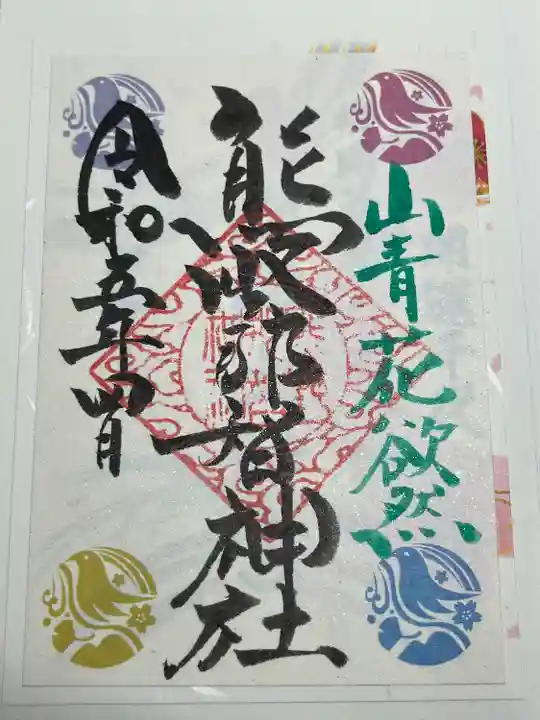 山青花欲然
熊野那智神社
令和五年四月